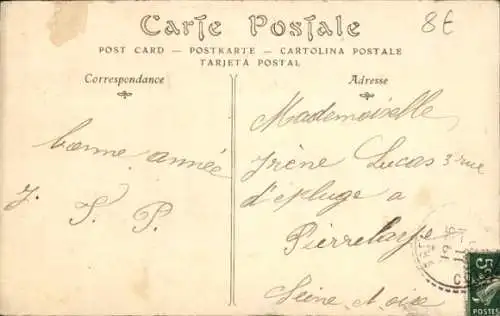 Carte Postale
8€
POST CARD — POSTKARTE — CARTOLINA POSTALE
TARJETA POSTAL
Correspondance
Adresse
bonne année
J. S. P.
Mademoiselle
Irène Lucas 3 rue
d'épluge a
Pierrelaye
Seine et oise
5c
POSTES